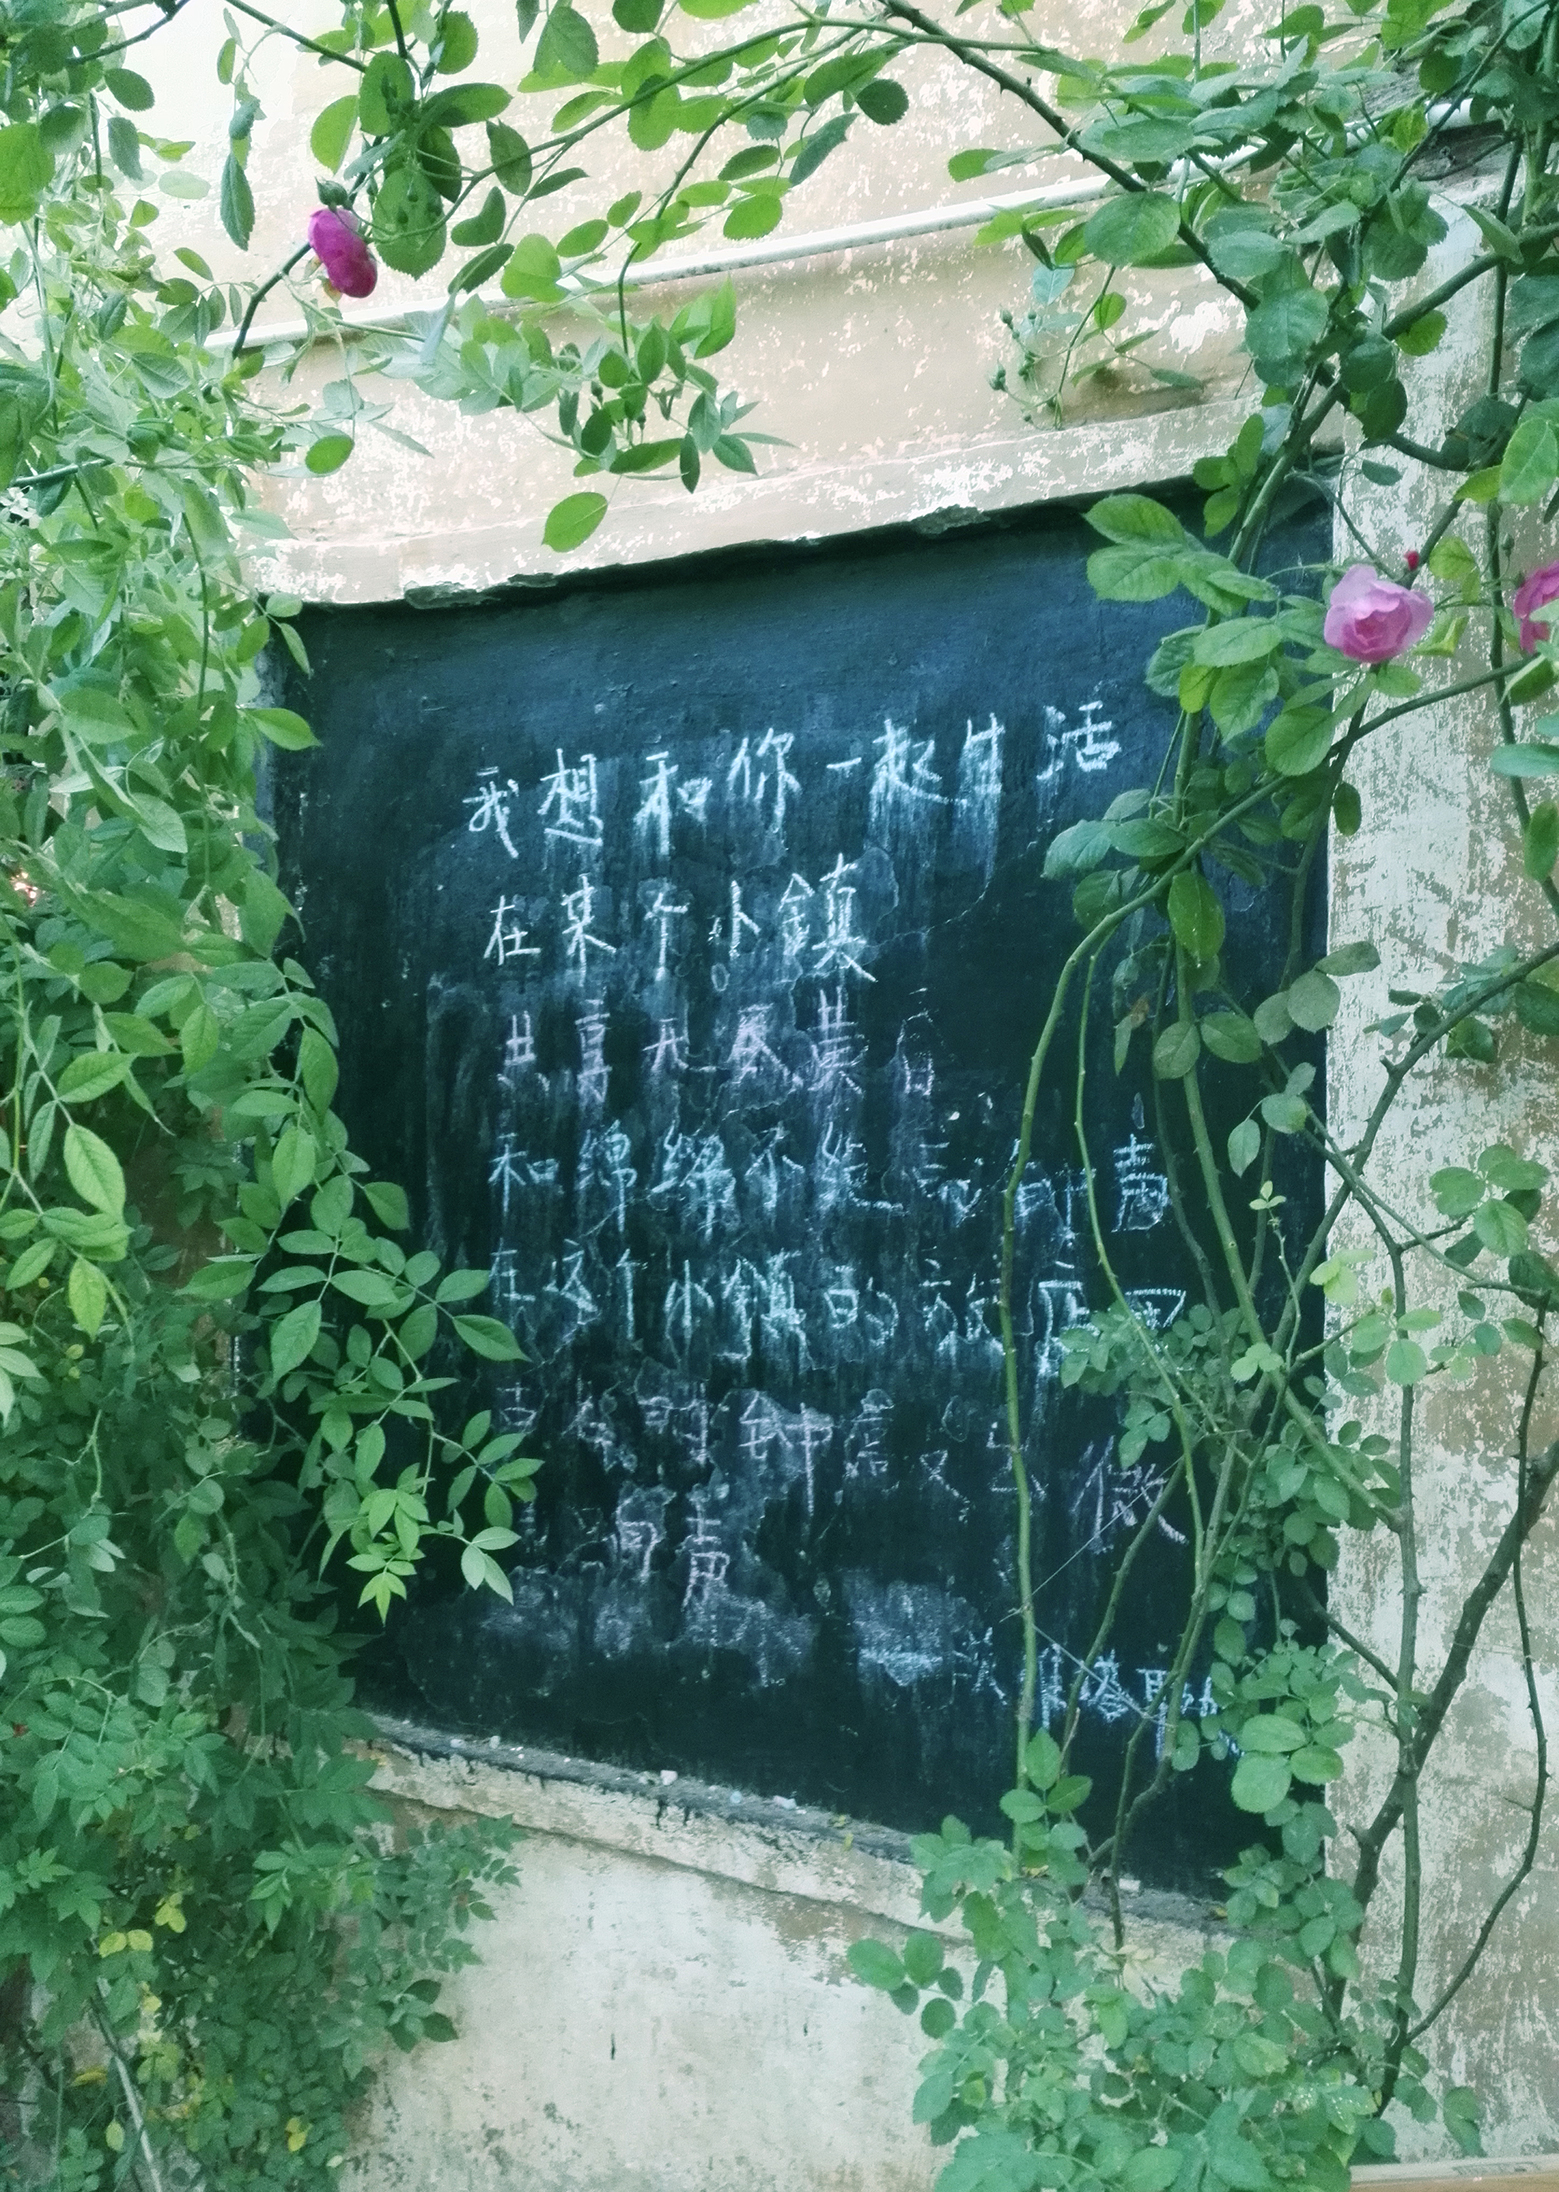 我想和你一起生活
在某个小鎮
共享无尽黄昏
和绵绵不绝声
在这个小鎮的旅店里
古老时钟敲出微
响声
—茨维塔耶